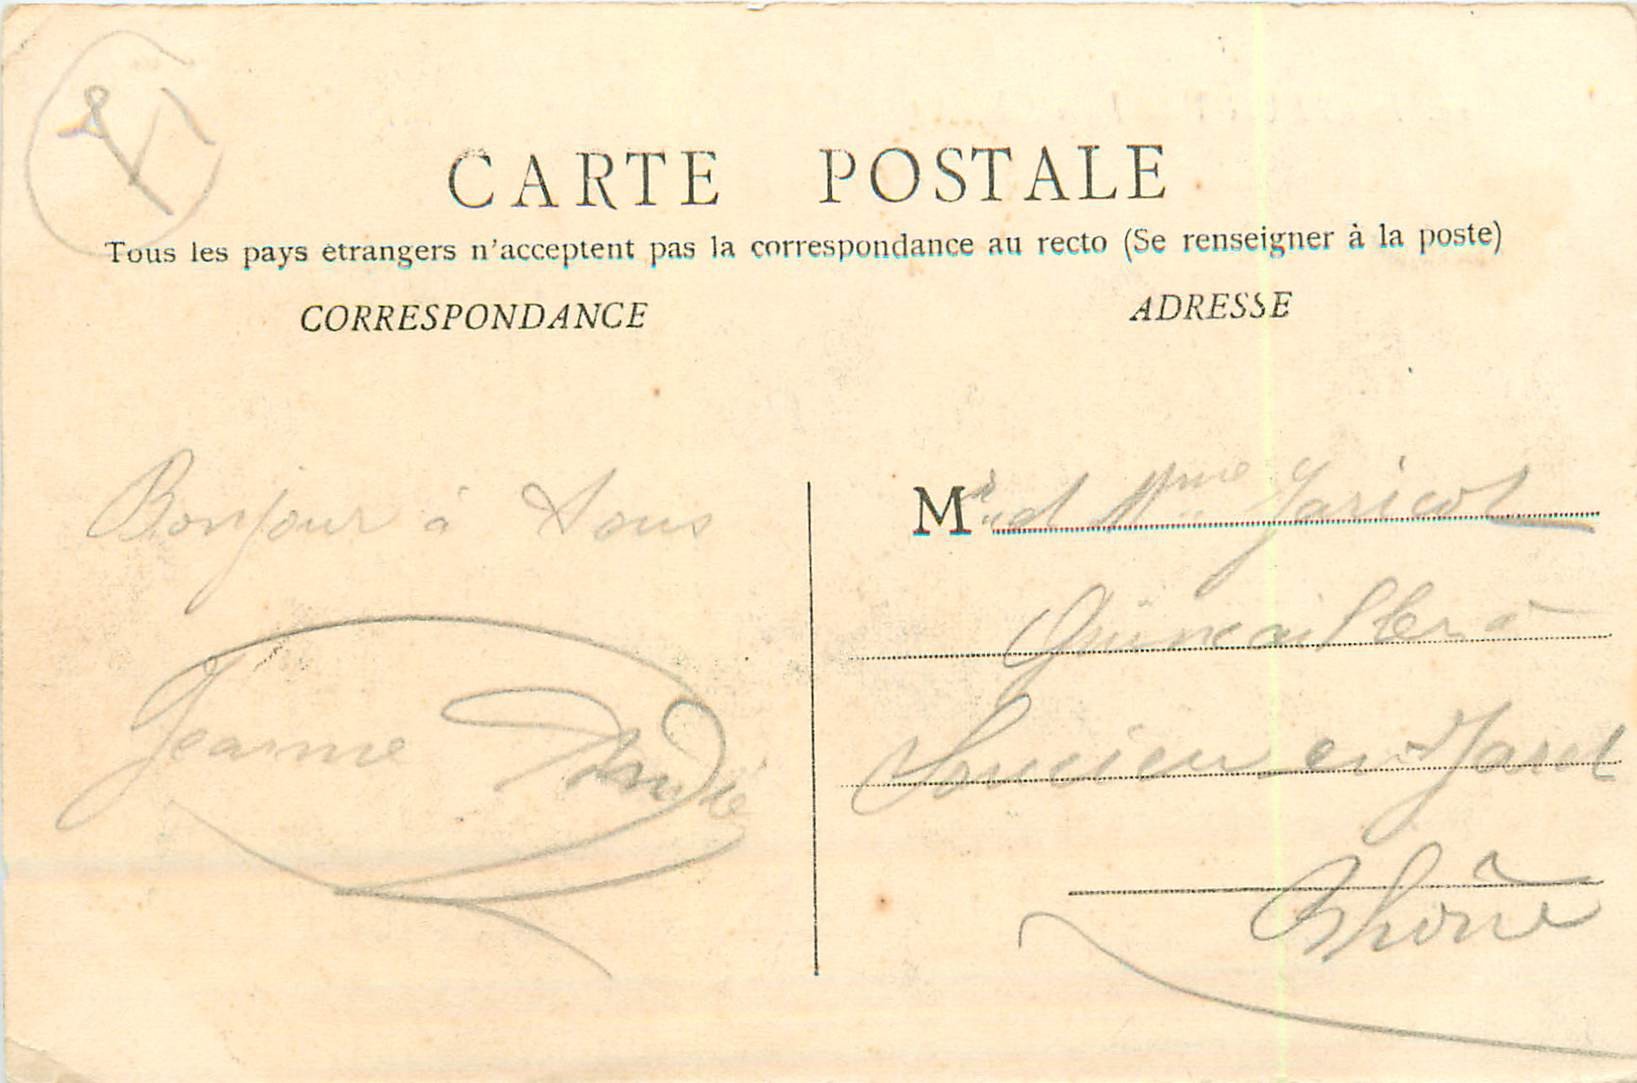 CARTE POSTALE
Tous les pays étrangers n'acceptent pas la correspondance au recto (Se renseigner à la poste)
CORRESPONDANCE
Bonjour à Tous
Jeanne
ADRESSE
Mr et Mme Jaricot
Quincailler à
Soucieu en Jarest
Rhône